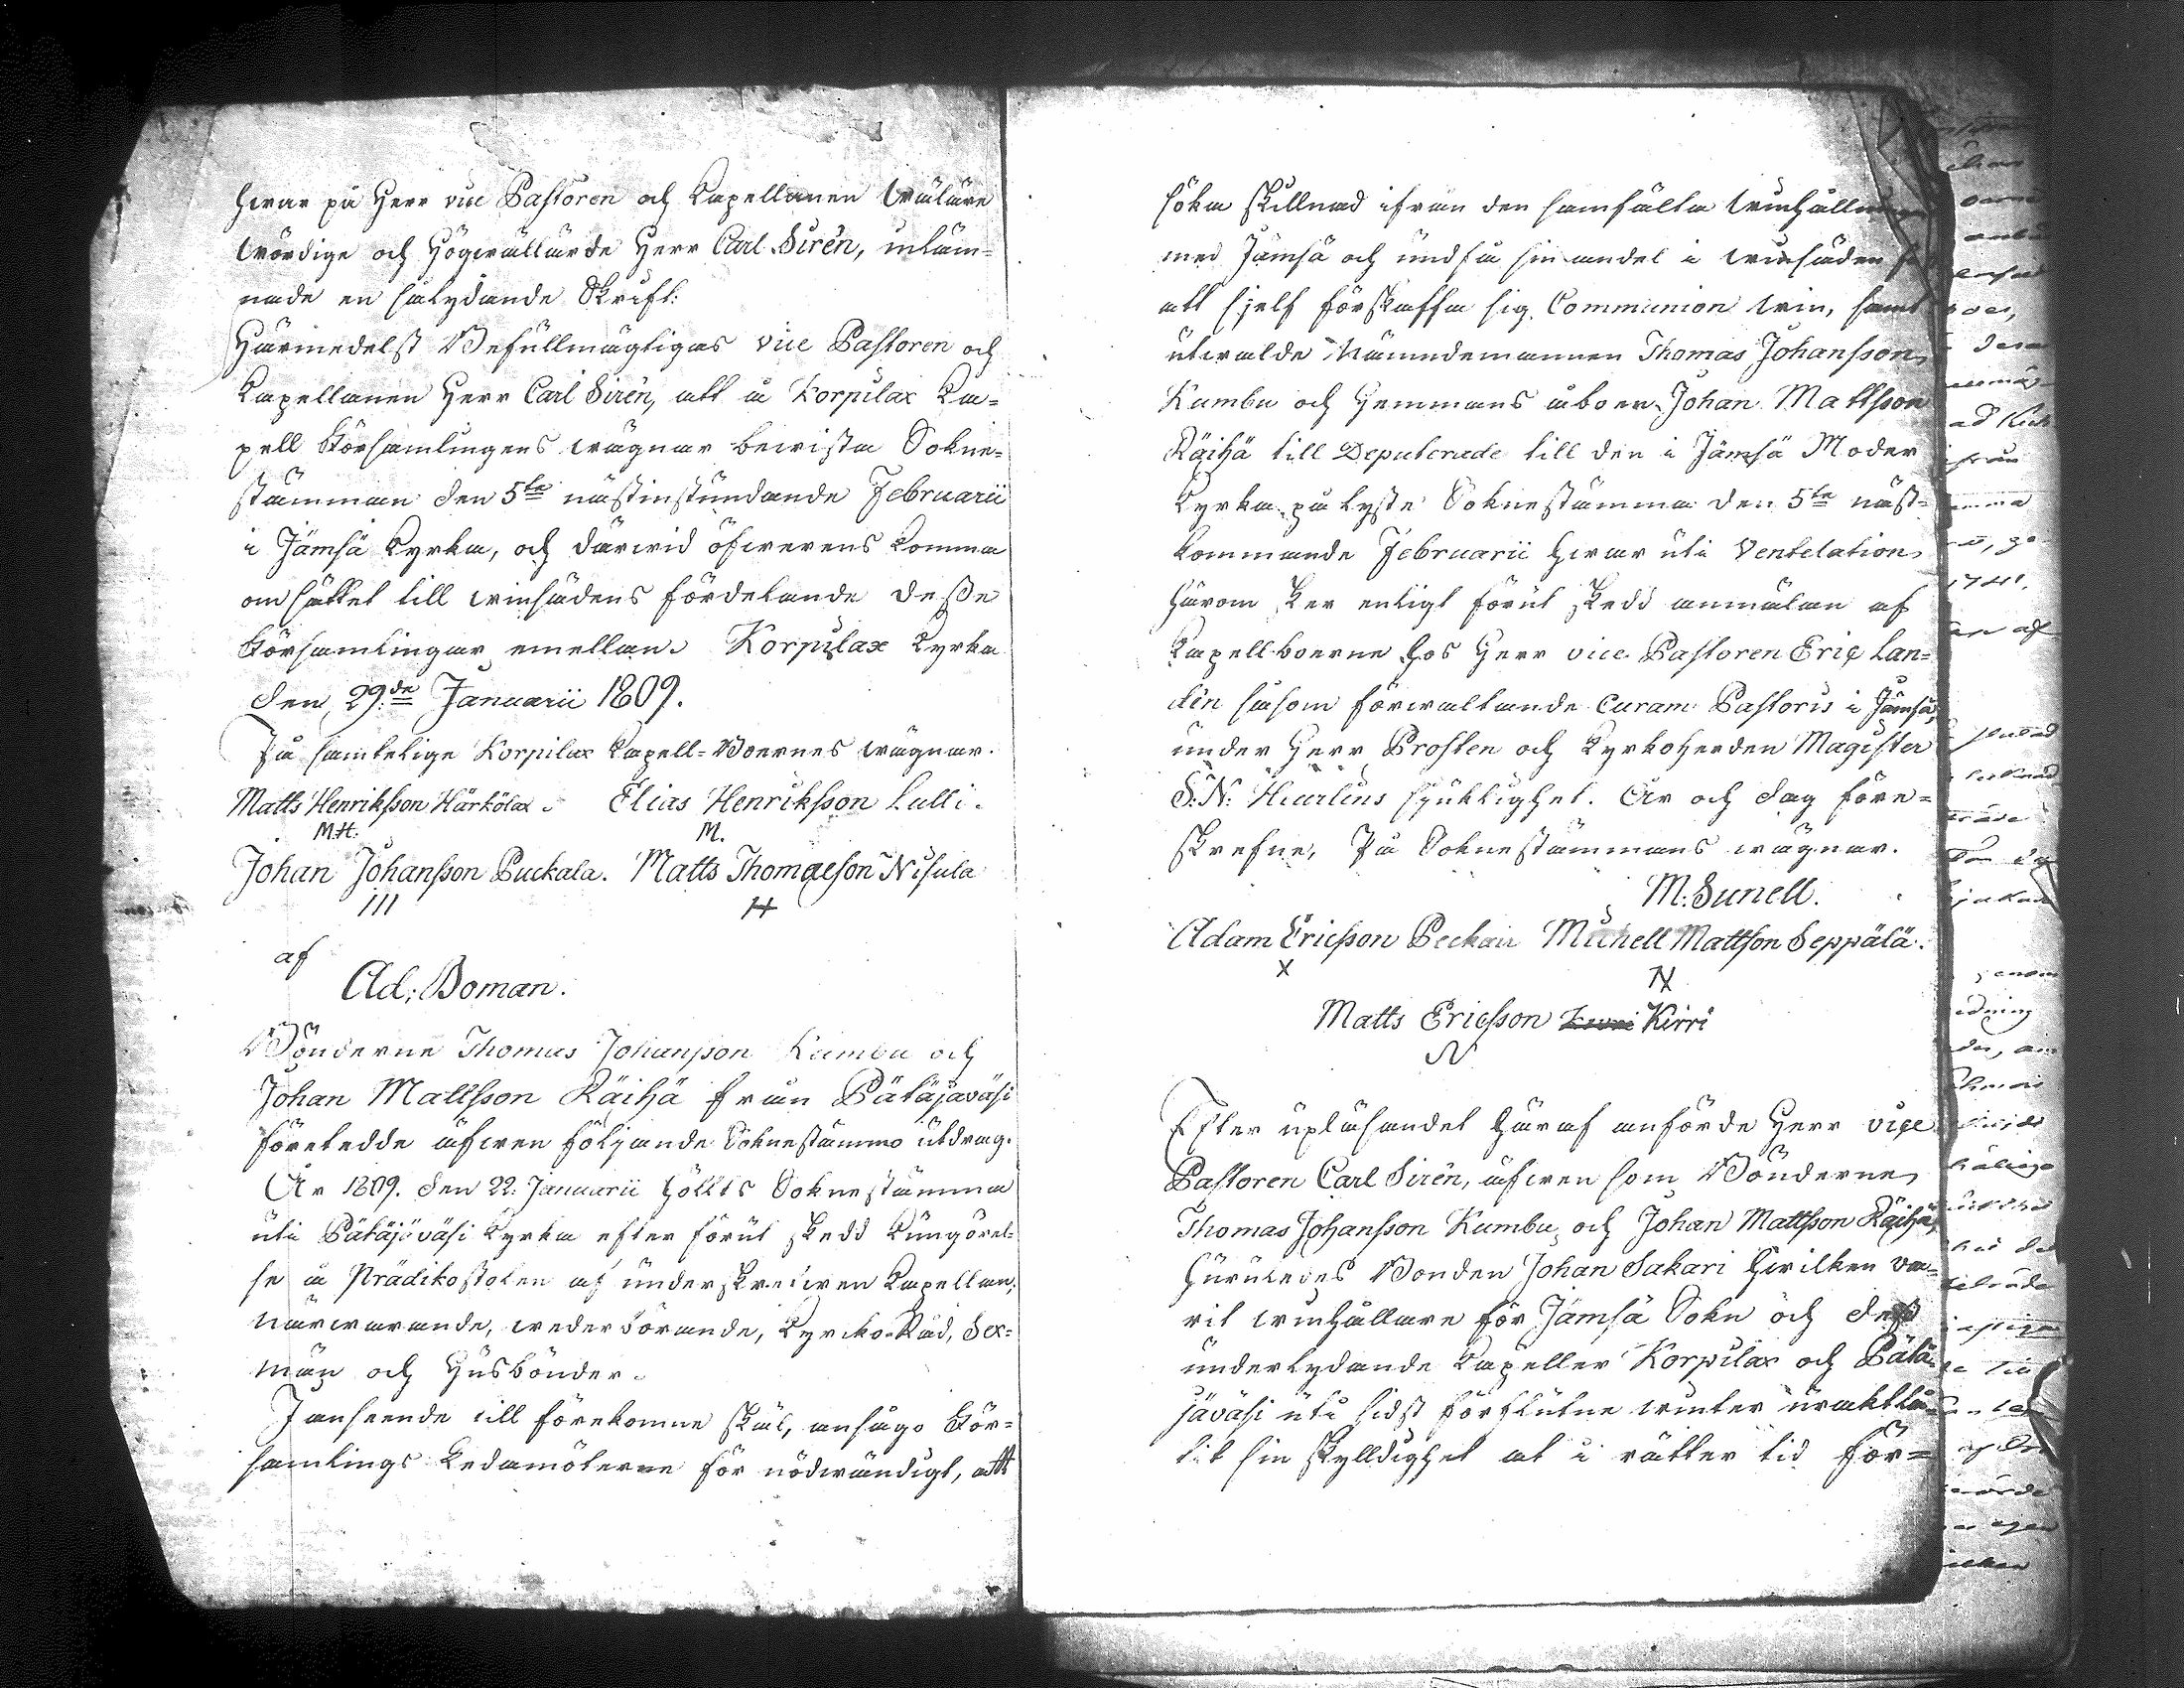 hwar på Herr vice Pastoren och Capellanen Wäläre
wördige och Högwällärde Herr Carl Sirén, inläm-
nade en sålydande Skrift:
Härmedelst Befullmägtigas vice Pastoren och
Capellanen Herr Carl Sirén, att å Korpilax Ka-
pell Församlingens wägnar bewista Sokne-
stämman den 5te nästinstundande Februarii
i Jämsä Kyrka, och därwid öfwerens komma
om sättet till winsädens fördelande desse
Församlingar emellan. Korpilax Kyrka
den 29de Januarii 1809.
På samtelige Korpilax Capell-Boernes wägnar.
Matts Henriksson Härkölä. Elias Henriksson Lulli.
M.H. M.
Johan Johansson Puckala. Matts Thomæson Nisula
III H
af
Ad: Boman.
Bönderne Thomas Johansson Kumbu och
Johan Mattsson Räihä från Pätäjäväsi
företedde äfwen följande Soknestämmo utdrag.
År 1809. den 22. Januarii hölts Soknestämma
uti Pätäjäväsi Kyrka efter förut skedd kungörel-
se å Prädikostolen af underskrefwen Capellan,
närwarande, wederbörande, Kyrcko-Råd, Sex-
män och Husbönder.
I anseende till förekomne skäl, ansågo För-
samlings Ledamöterne för nödwändigt, att
söka skillnad ifrån den samfälta winhållningen
med Jämsä och undfå sin andel i winsäden
att sjelf förskaffa sig Communion win, samt
utwalde Nämndemannen Thomas Johansson
Kumbu och Hemmans åboen Johan Mattsson
Räihä till Deputerade till den i Jämsä Moder
Kyrka pålyste Soknestämma den 5te näst-
kommande Februarii hwar uti Ventelation
härom sker enligt förut skedd anmälan af
Capellboerne hos Herr vice Pastoren Eric Lan-
dén såsom förwaltande curam Pastoris i Jämsä,
under Herr Prosten och Kyrkoherden Magister
S: N: Heurlins sjuklighet. År och dag före-
skrefne. På Soknestämmans wägnar.
M: Sunell.
Adam Ericsson Peckari Michell Mattson Seppälä.
X N
Matts Ericsson Kirri
N
Efter upläsandet häraf anförde Herr vice
Pastoren Carl Sirén, äfwen som Bönderne
Thomas Johansson Kumbu och Johan Mattsson Räihä,
huruledes Bonden Johan Sakari hwilken wa-
rit winhållare för Jämsä Sokn och dess
underlydande Capeller Korpilax och Pätä-
jäväsi uti sidst förflutne winter uraktlå-
tit sin skylldighet at i rätter tid för-